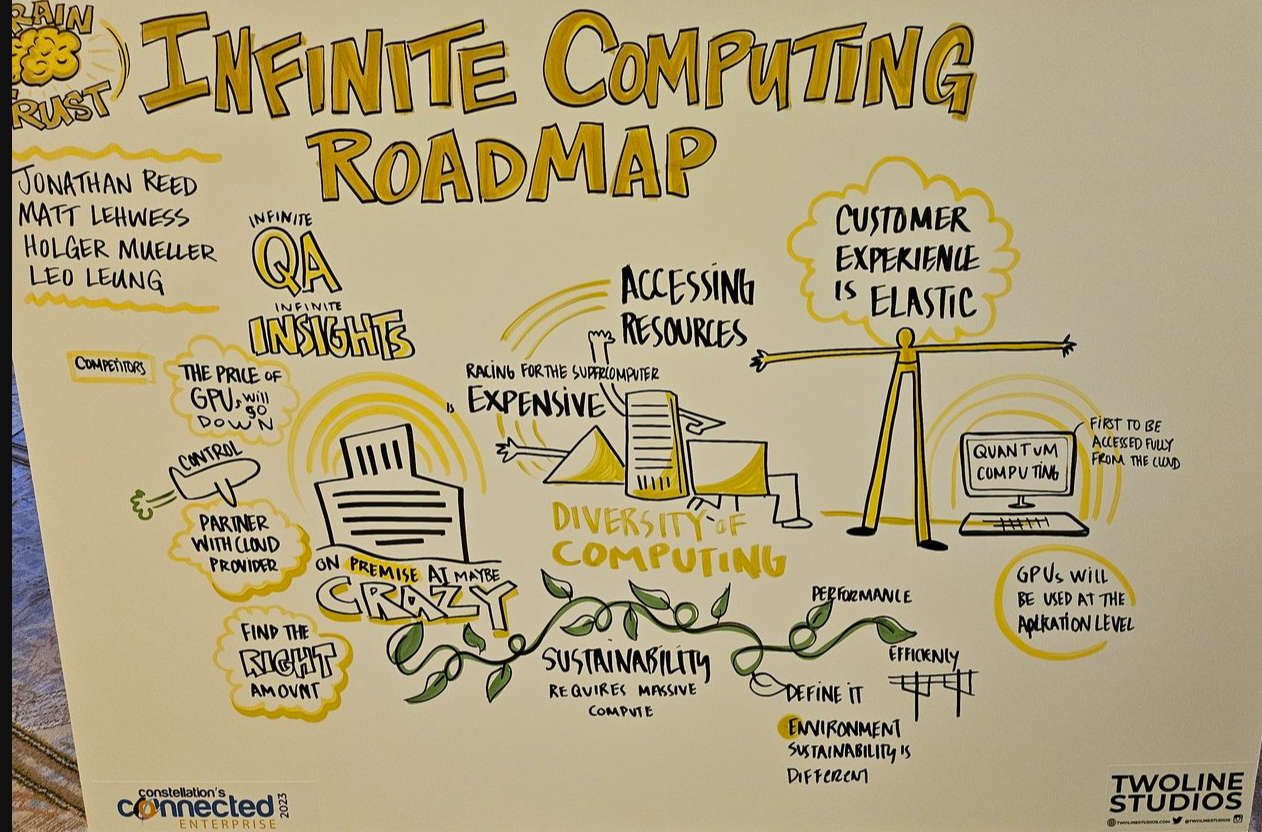 RAIN
TRUST
INFINITE COMPUTING
ROADMAP
JONATHAN REED
MATT LEHWESS
HOLGER MUELLER
LEO LEUNG
INFINITE
QA
INFINITE
INSIGHTS
COMPETITORS
THE PRICE OF
GPUs will
go
DOWN
CONTROL
PARTNER
WITH CLOUD
PROVIDER
FIND THE
RIGHT
AMOUNT
ON PREMISE AI MAYBE
CRAZY
ACCESSING
RESOURCES
RACING FOR THE SUPERCOMPUTER
is EXPENSIVE
DIVERSITY OF
COMPUTING
CUSTOMER
EXPERIENCE
IS ELASTIC
QUANTUM
COMPUTING
FIRST TO BE
ACCESSED FULLY
FROM THE CLOUD
GPUs WILL
BE USED AT THE
APLKATION LEVEL
SUSTAINABILITY
REQUIRES MASSIVE
COMPUTE
PERFORMANCE
EFFICIENLY
DEFINE IT
ENVIRONMENT
SUSTAINABILITY IS
DIFFERENT
constellation's
connected
ENTERPRISE
2023
TWOLINE
STUDIOS
TWOLINESTUDIOS.COM @TWOLINESTUDIOS